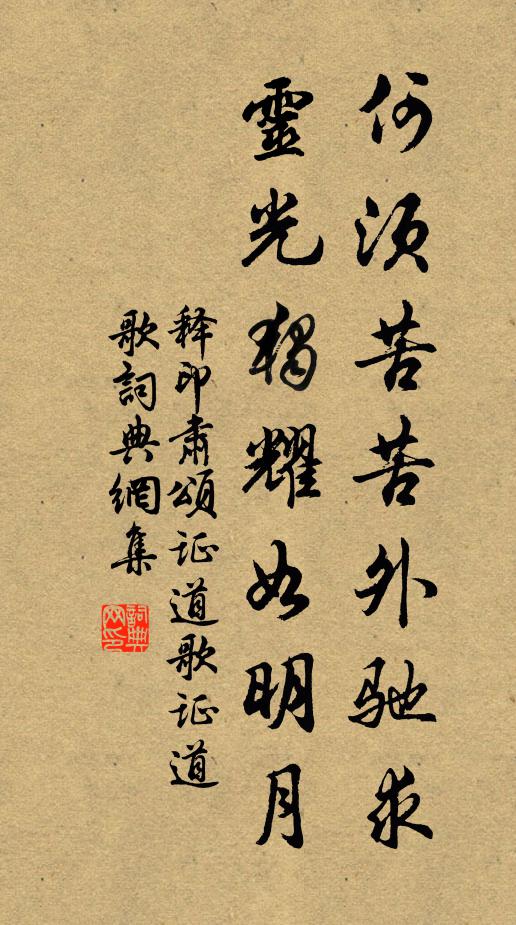 何須苦苦外馳求
靈光獨耀如明月
釋印肅頌证道歌证道
歌詞典網集
詞典
网印